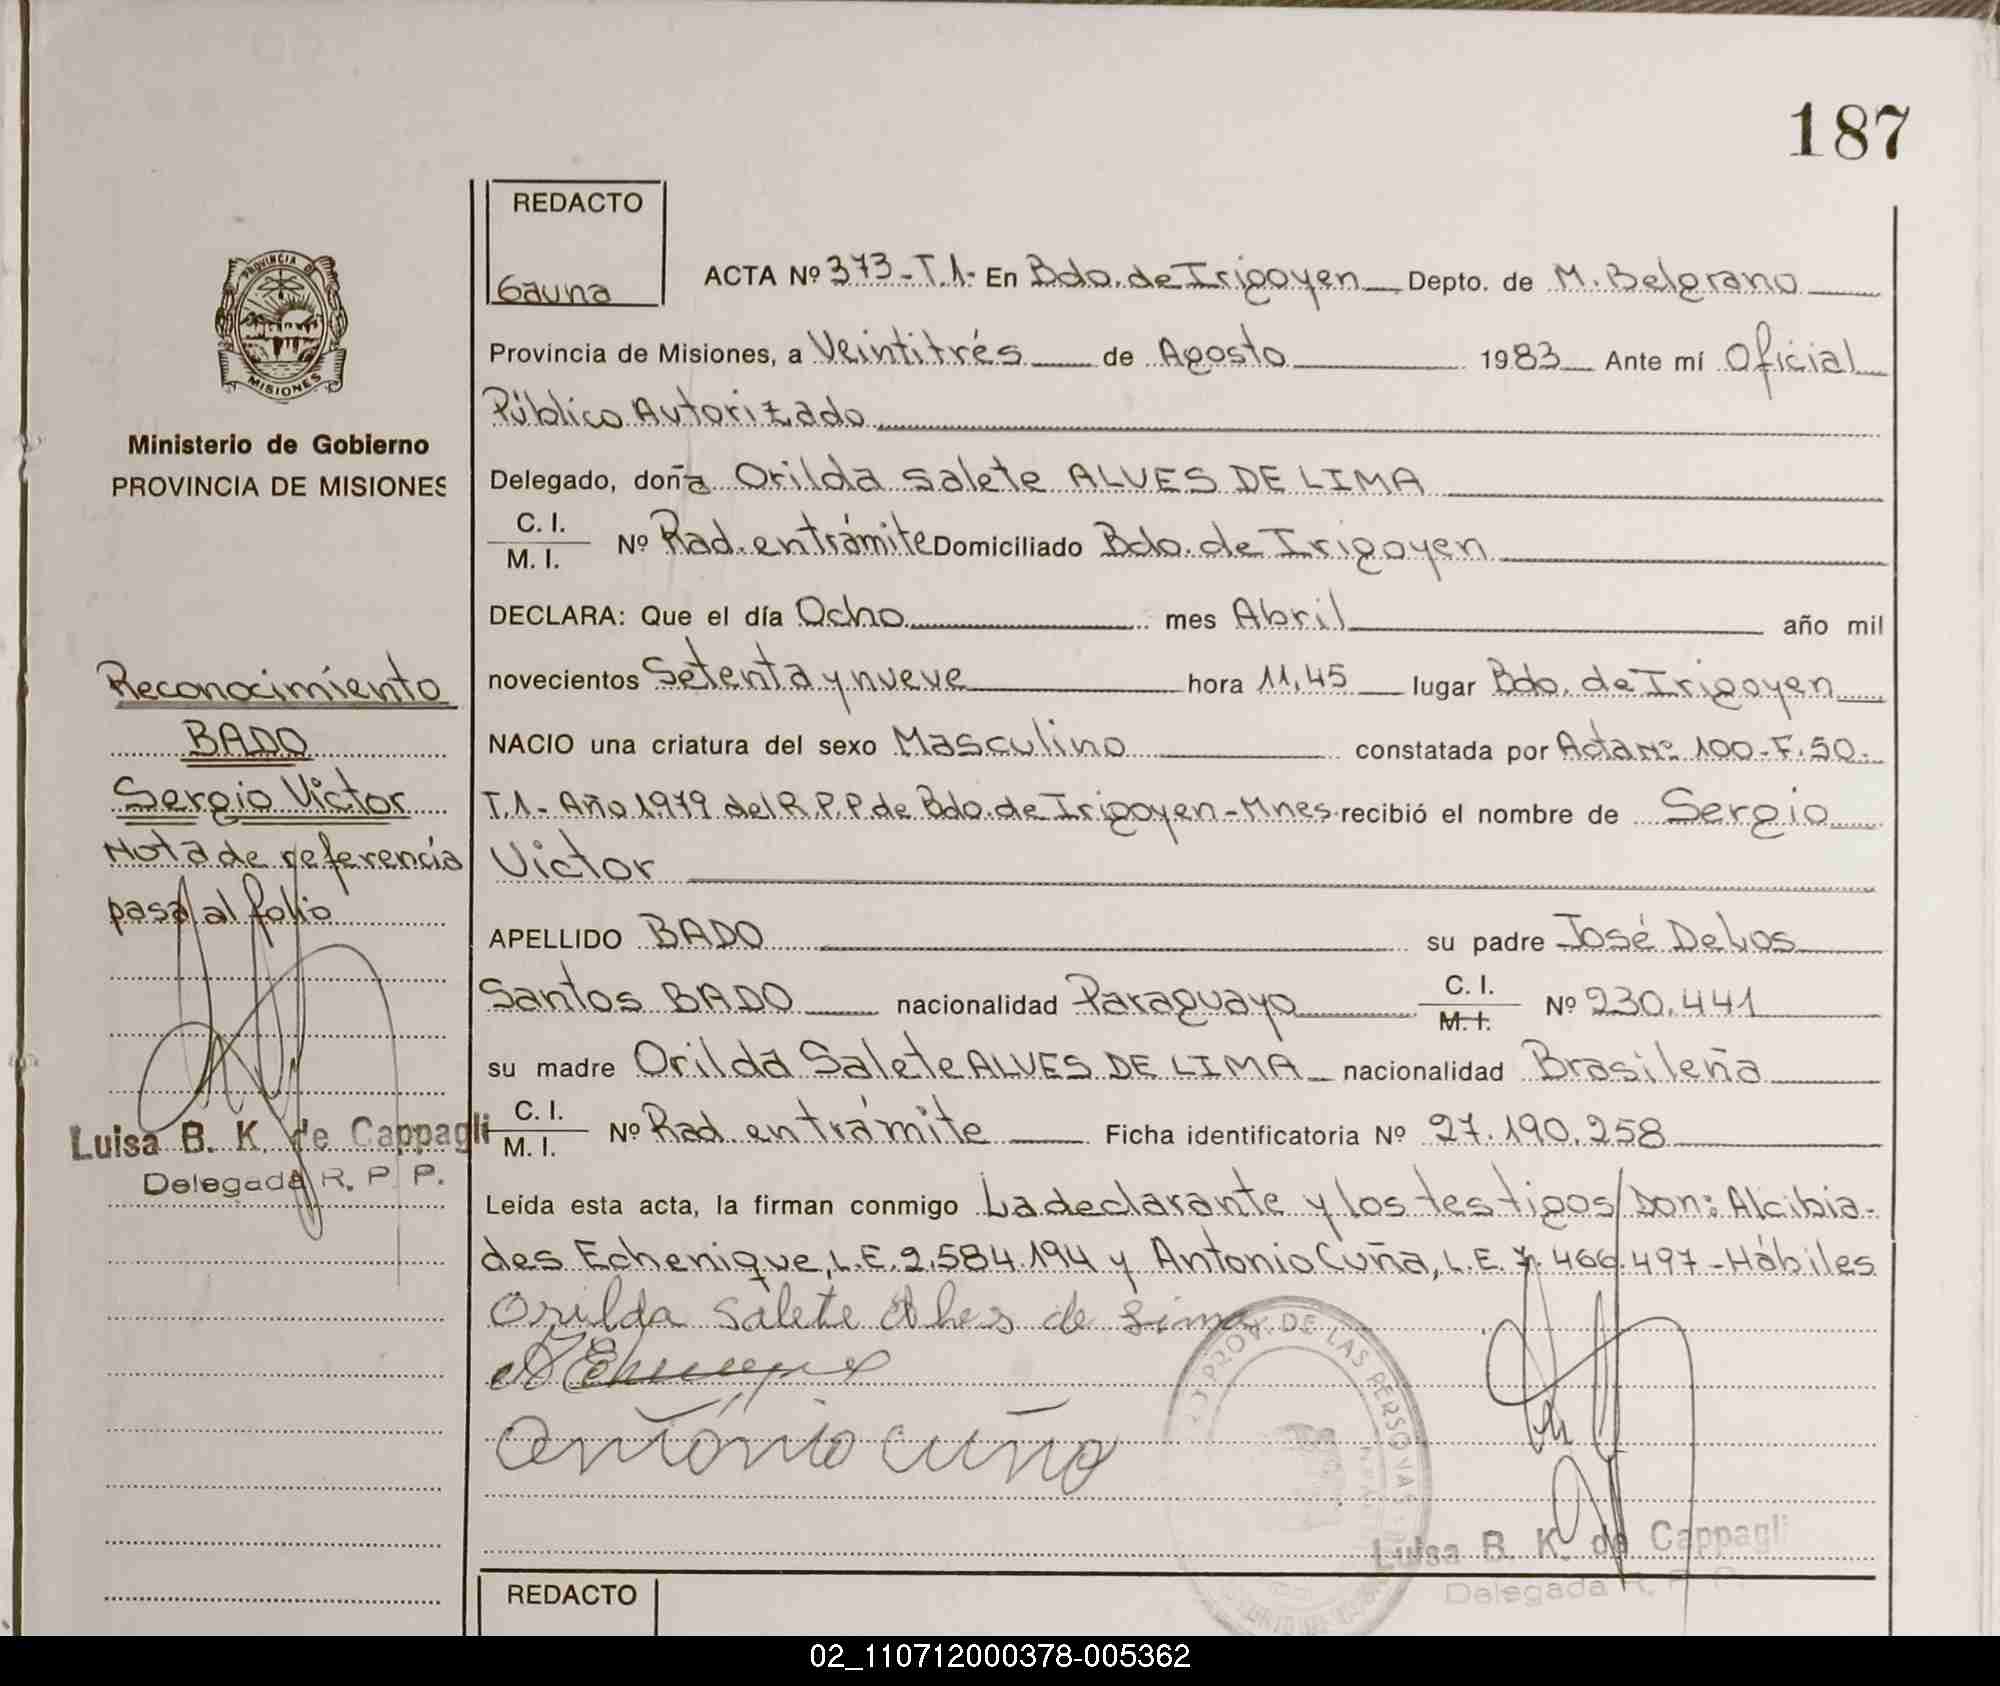 187
REDACTO
Gauna
PROVINCIA DE
MISIONES
Ministerio de Gobierno
PROVINCIA DE MISIONES
ACTA Nº 373-T.1- En Bdo. de Irigoyen Depto. de M. Belgrano
Provincia de Misiones, a Veintitrés de Agosto 1983 Ante mí Oficial
Público Autorizado
Delegado, doña Orilda Salete ALVES DE LIMA
C. I.
M. I. Nº Rad. en trámite Domiciliado Bdo. de Irigoyen
DECLARA: Que el día Ocho mes Abril año mil
novecientos Setenta y nueve hora 11,45 lugar Bdo. de Irigoyen
NACIO una criatura del sexo Masculino constatada por Acta Nº 100-F.50-
T.1- Año 1979 del R.P.P de Bdo. de Irigoyen-Mnes. recibió el nombre de Sergio
Victor
APELLIDO BADO su padre José De Los
Santos BADO nacionalidad Paraguayo C. I. M. I. Nº 230.441
su madre Orilda Salete ALVES DE LIMA nacionalidad Brasileña
C. I.
M. I. Nº Rad. en trámite Ficha identificatoria Nº 27.190.258
Leída esta acta, la firman conmigo La declarante y los testigos Don: Alcibia-
des Echenique, L.E. 2.584.194 y Antonio Cuña, L.E. 7.466.497 - Hábiles
Orilda Salete Alves de Lima
Antonio Cuña
PROV. DE LAS PERSONAS
Luisa B. K. de Cappagli
Delegada R. P. P.
Reconocimiento
BADO
Sergio Victor
Nota de referencia
pasa al folio
Luisa B. K. de Cappagli
Delegada R. P. P.
REDACTO
02_110712000378-005362